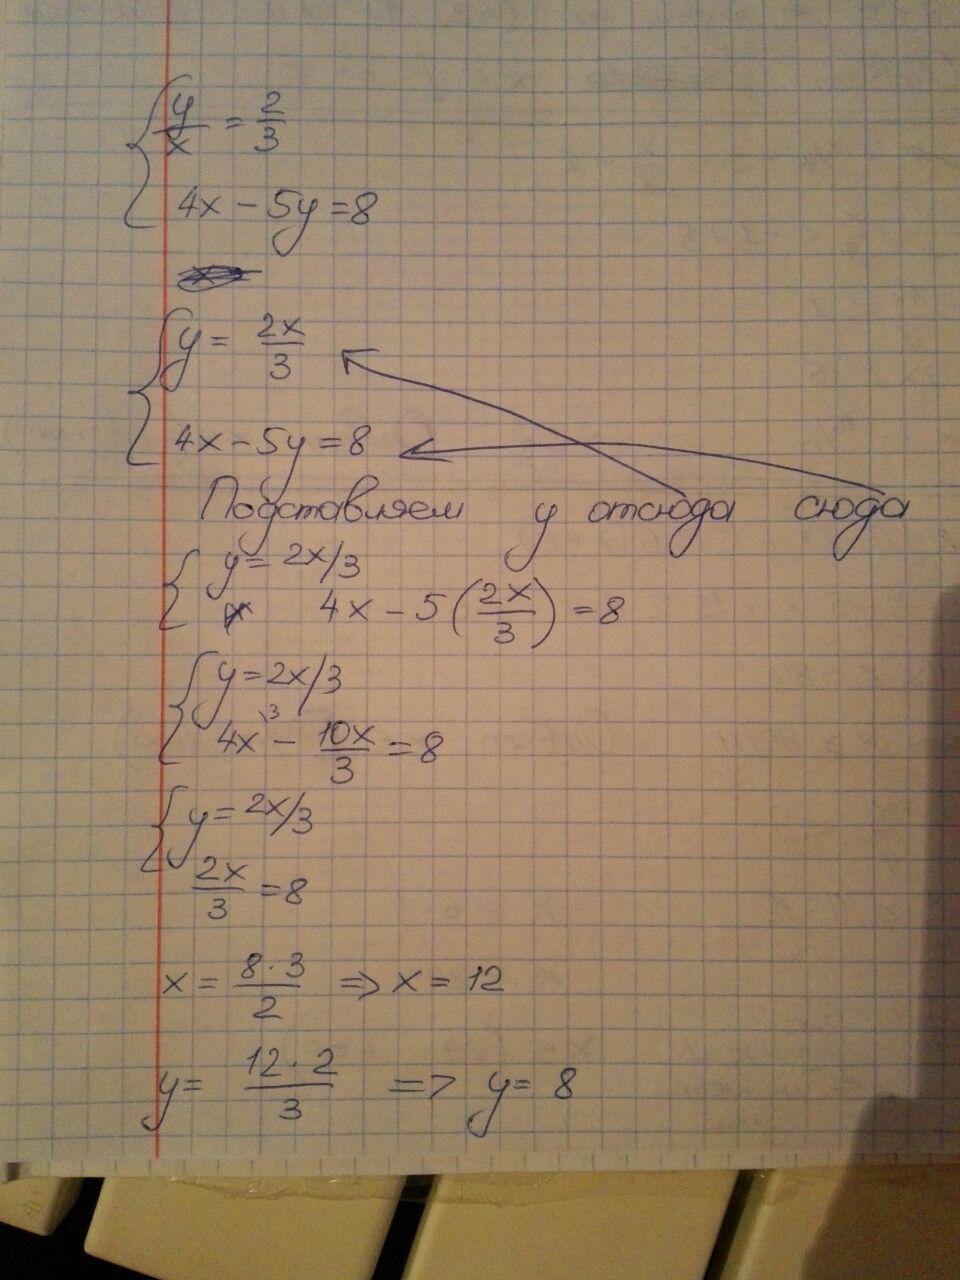 y/x = 2/3
4x - 5y = 8
y = 2x/3
4x - 5y = 8
Подставляем y отсюда сюда
y = 2x/3
4x - 5(2x/3) = 8
y = 2x/3
4x \3 - 10x/3 = 8
y = 2x/3
2x/3 = 8
x = 8·3/2 => x = 12
y = 12·2/3 => y = 8